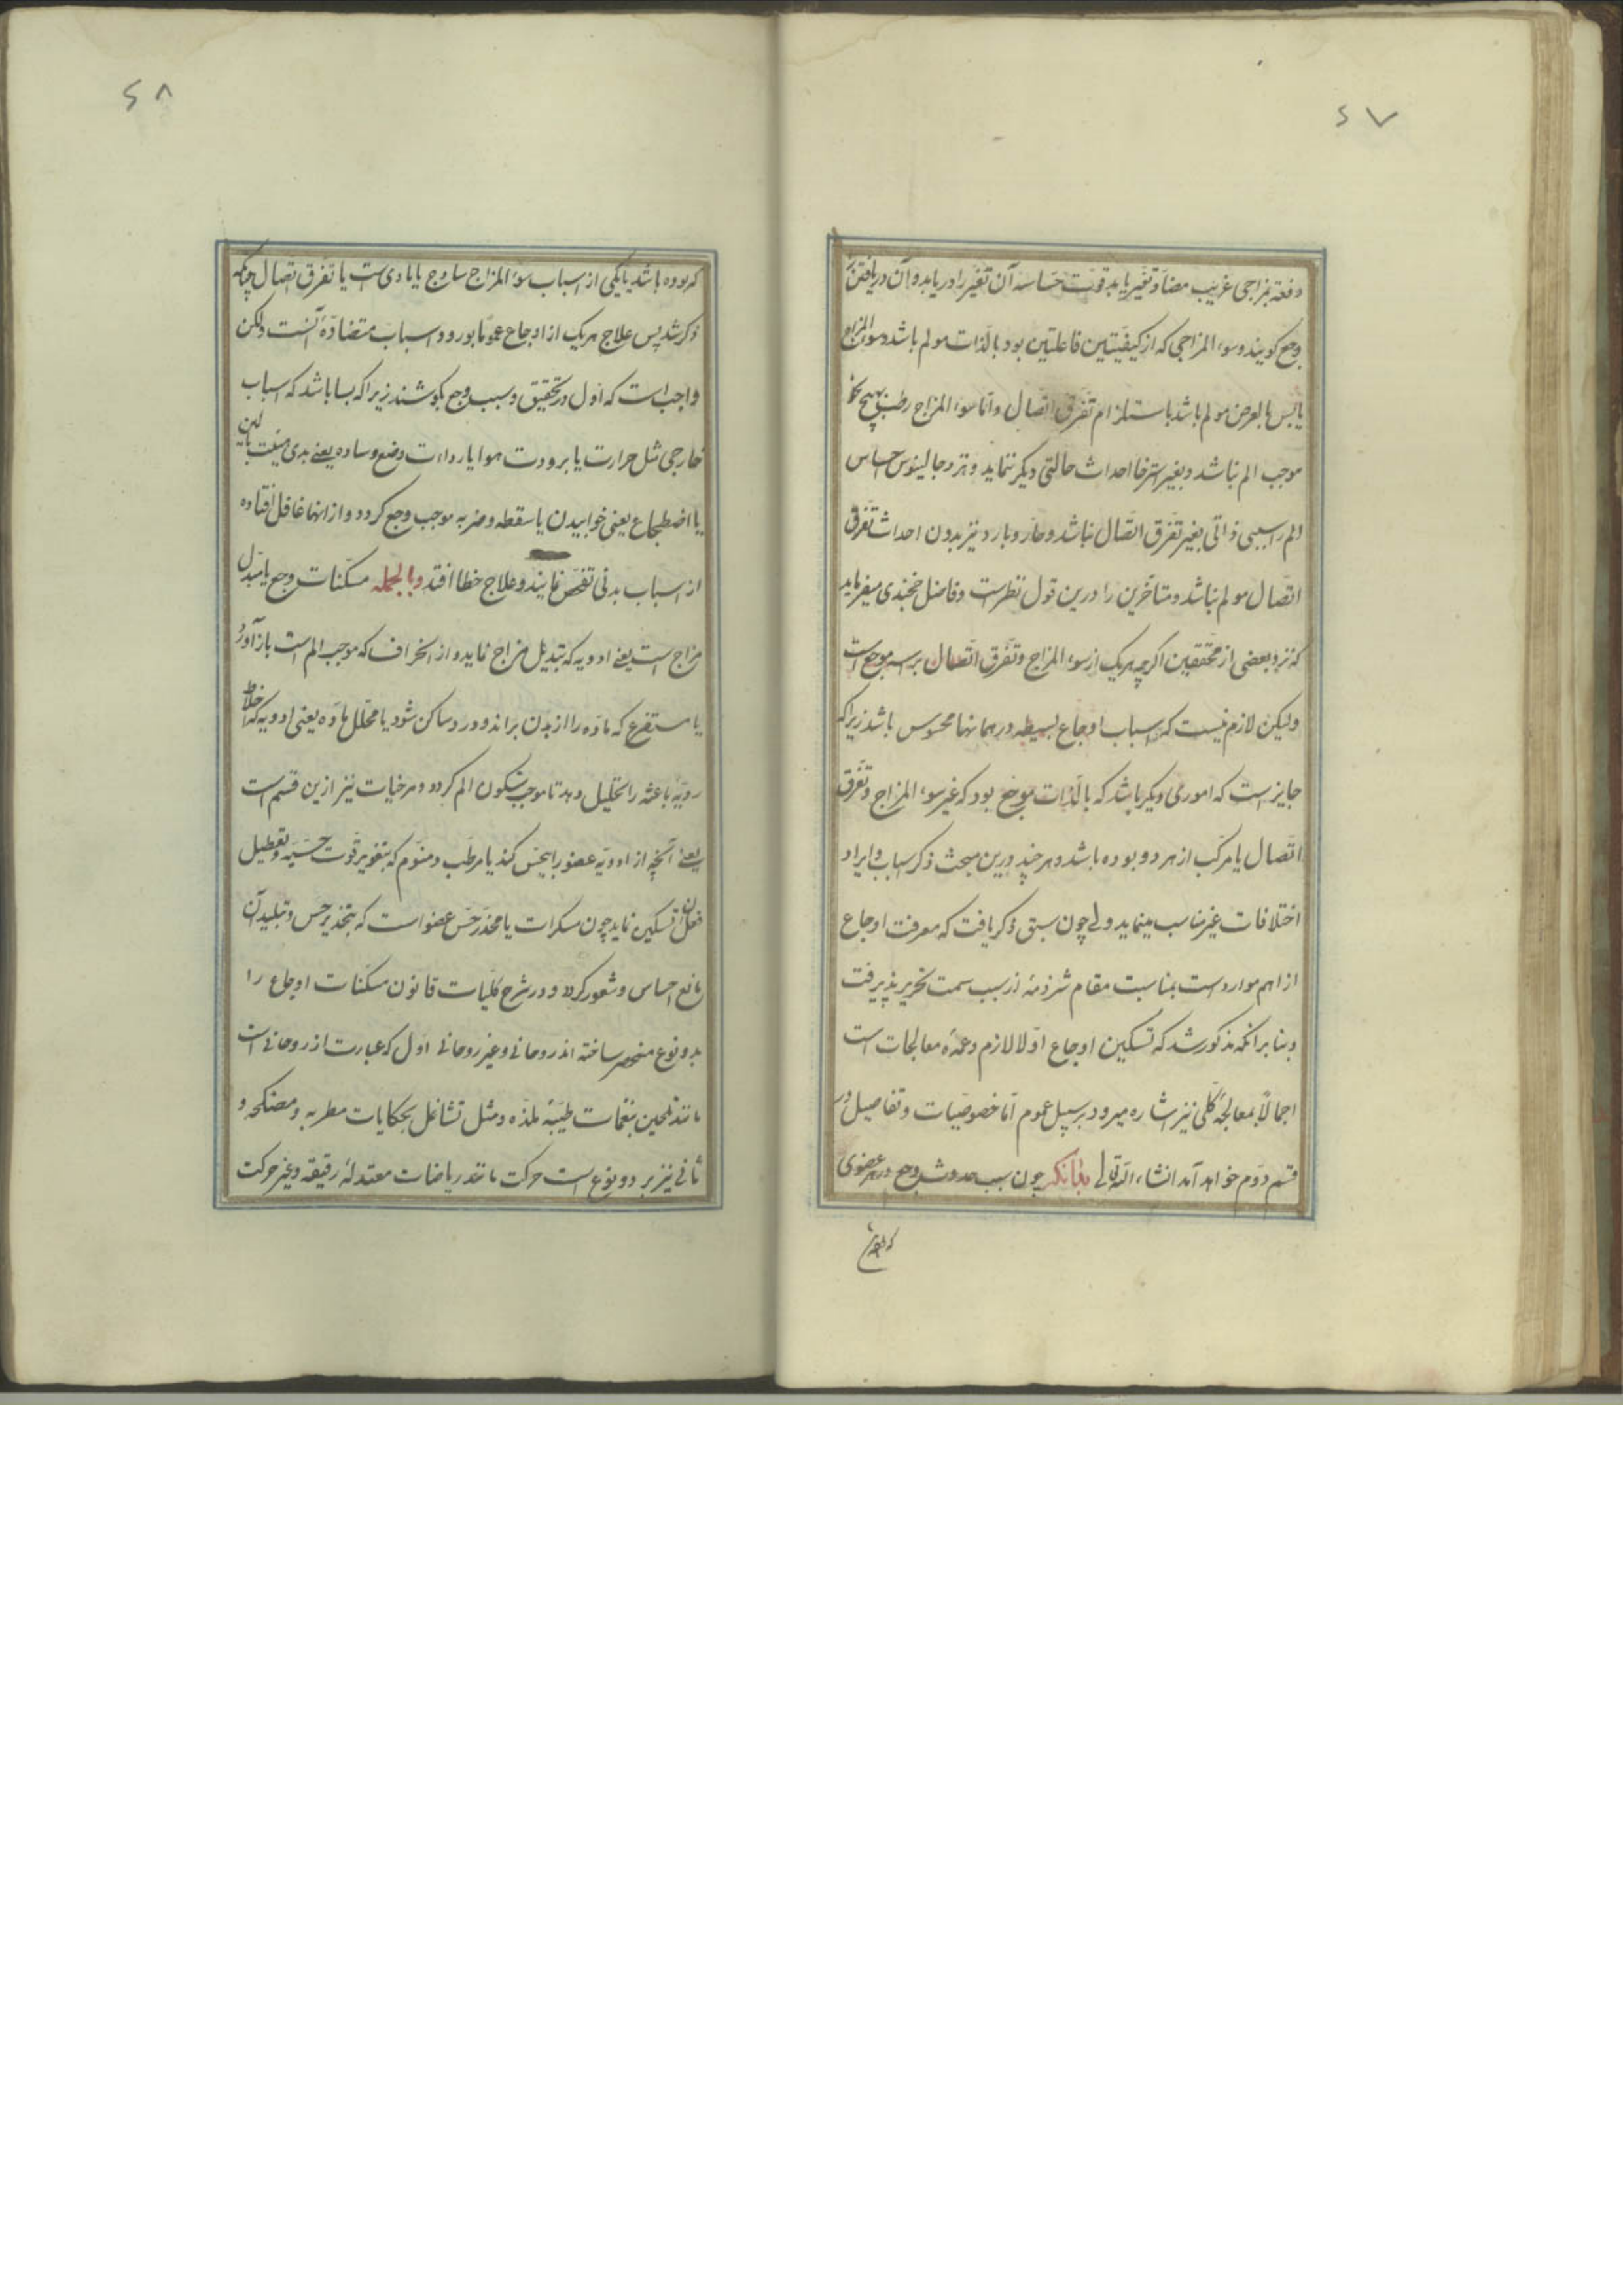 ۶۷
دفعة بمزاجی غریب مضاد تغیر یابد قوت حساسه آن تغیر را دریابد و آن دریافتن را
وجع کویند و سوء المزاجی که از کیفیتین فاعلتین بود بالذات مولم باشد و سوء المزاج
یابس بالعرض مولم باشد باستلزام تفرق اتصال و اما سوء المزاج رطب بهیچ نحو
موجب الم نباشد و بغیر استرخا احداث حالتی دیکر ننماید و نزد جالینوس احساس
الم را سببی ذاتی بغیر تفرق اتصال نباشد و حار و بارد نیز بدون احداث تفرق
اتصال مولم نباشد و متاخرین را درین قول نظرست و فاضل خجندی میفرماید
که نزد بعضی از محققین اکرچه هریک از سوء المزاج و تفرق اتصال براسه موجع است
ولیکن لازم نیست که اسباب اوجاع بسیطه در همانها محسوس باشد زیرا که
جایزست که امورمی دیکر باشد که بالذات موجع بود که غیر سوء المزاج و تفرق
اتصال یا مرکب از هر دو بوده باشد و هر چند درین مبحث ذکر اسباب و ایراد
اختلافات غیر مناسب مینماید ولی چون سبق ذکر یافت که معرفت اوجاع
از اهم مواردست بمناسبت مقام شرذمهٔ از سبب سمت تحریر پذیرفت
و بنا بر انکه مذکور شد که تسکین اوجاع اولا لازم و عمدهٔ معالجات است
اجمالاً بمعالجهٔ کلی نیز اشاره میرود بر سبیل عموم اما خصوصیات و تفاصیل در
قسم دوم خواهد آمد انشاء الله تعالی بدانکه چون سبب حدوث وجع در هر عضوی
که بوده
۶۸
که بوده باشد یا یکی از اسباب سوء المزاج ساذج یا مادی است یا تفرق اتصال چنانکه
ذکر شد پس علاج هر یک از اوجاع عموما بورود اسباب متضادهٔ آنست ولکن
واجب است که اول در تحقیق و سبب وجع بکوشند زیرا که بسا باشد که اسباب
خارجی مثل حرارت یا برودت هوا یا رداءت وضع وساده یعنی بدی هیئت بالین
یا اضطجاع یعنی خوابیدن یا سقطه و ضربه موجب وجع کردد و از انها غافل افتاده
از اسباب بدنی تفحص نمایند و علاج خطا افتد و بالجمله مسکنات وجع یا مبدل
مزاج است یعنی ادویه که تبدیل مزاج نماید و از انحراف که موجب الم است باز آورد
یا مستفرغ که ماده را از بدن براند و درد ساکن شود یا محلل ماده یعنی ادویه که اخلاط
ردیهٔ باعثه را تحلیل دهد تا موجب سکون الم کردد و مرخیات نیز ازین قسم است
یعنی آنچه از ادویه عضو را بیحس کند یا مرطب و منوم که بتغویر قوت حسیه و تعطیل
فعل آن تسکین نماید چون مسکرات یا مخدر حس عضو است که بتخدیر حس و تبلید آن
مانع احساس و شعور کردد و در شرح کلیات قانون مسکنات اوجاع را
بدو نوع منحصر ساخته اند روحانی و غیر روحانی اول که عبارت از روحانی است
مانند تلحین بنغمات طیبهٔ ملذه و مثل تشاغل بحکایات مطربه و مضحکه و
ثانی نیز بر دو نوع است حرکت مانند ریاضات معتدلهٔ رقیقه و غیر حرکت